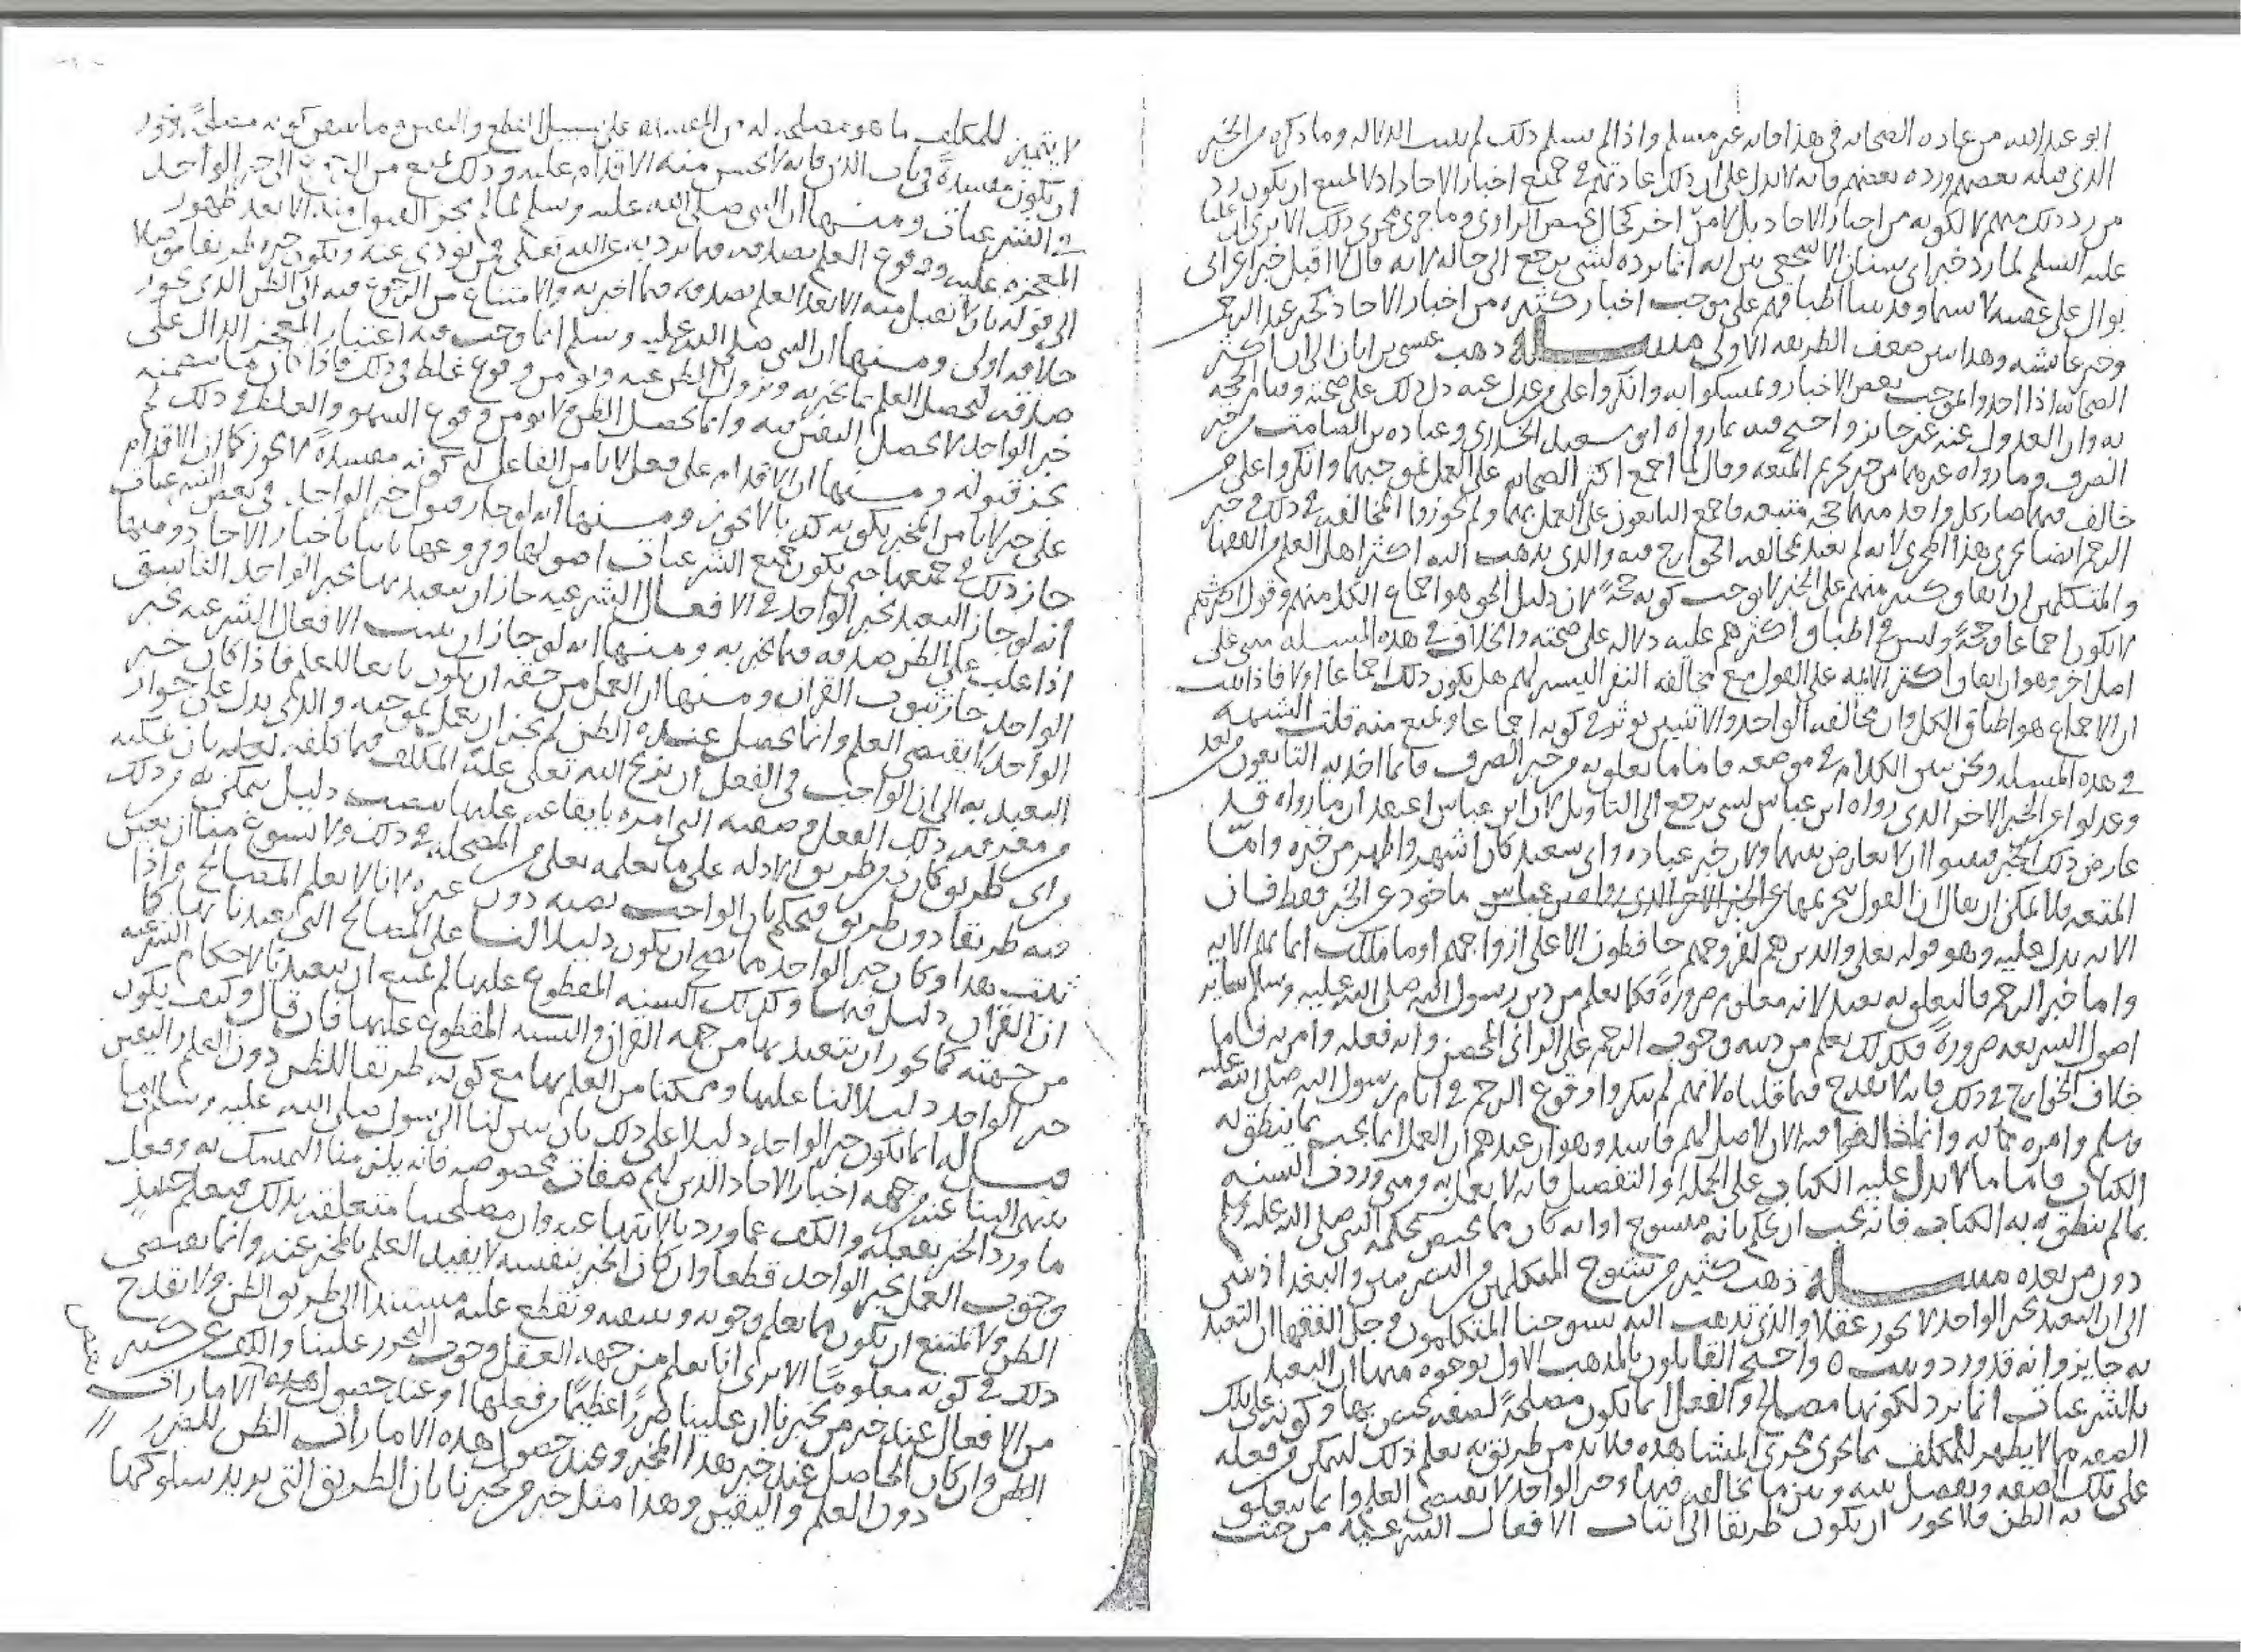 ابو عبد الله من عاده الصحابه في هذا فانه غير مسلم واذا لم يسلم ذلك لم يثبت الدلاله وما ذكره من الخبر
الذي قبله بعضهم ورده بعضهم فانه لا يدل على ان ذلك عادتهم في جميع اخبار الاحاد اذ لا يمتنع ان يكون رد
من رد ذلك منهم لا لكونه من اخبار الاحاد بل لامر اخر كحال يخص الراوي وما جرى مجرى ذلك الا ترى ان عليا
عليه السلم لما رد خبر ابي سنان الاشجعي بين انه انما يرده لشي يرجع الى حاله لانه قال لا اقبل خبر اعرابي
بوال على عقبيه لا سيما وقد بينا اطباقهم على موجب اخبار كثيره من اخبار الاحاد كخبر عبد الرحمن
وخبر عائشه وهذا يبين ضعف الطريقه الاولى مســـله ذهب عيسى بن ابان الى ان اكثر
الصحابه اذا اخذوا بموجب بعض الاخبار وتمسكوا به وانكروا على من عدل عنه دل ذلك على صحته وقيام الحجه
به وان العدول عنه غير جايز واحتج فيه بما رواه ابو سعيد الخدري وعباده بن الصامت من خبر
الصرف وما رواه غيرهما من خبر تحريم المتعه وقال لما اجمع اكثر الصحابه على العمل بموجبهما وانكروا على من
خالف فيهما صار كل واحد منهما حجه متبعه فاجمع التابعون على العمل بهما ولم يجوزوا المخالفه في ذلك وخبر
الرجم ايضا يجري هذا المجرى لانه لم يعتد بمخالفه الخوارج فيه والذي يذهب اليه اكثر اهل العلم من الفقها
والمتكلمين ان اتفاق كثير منهم على الخبر لا يوجب كونه حجه لان دليل الحق هو اجماع الكل منهم وقول اكثرهم
لا يكون اجماعا وحجه وليس في اطباق اكثرهم عليه دلاله على صحته والخلاف في هذه المسله مبني على
اصل اخر وهو ان اتفاق اكثر الامه على القول مع مخالفه النفر اليسير لهم هل يكون ذلك اجماعا او لا فاذا ثبت
ان الاجماع هو اطباق الكل وان مخالفه الواحد والاثنين يوثر في كونه اجماعا ويمنع منه قلت الشبهه
في هذه المسله ونحن نبين الكلام في موضعه فاما ما تعلق به من خبر الصرف فانما اخذ به التابعون
وعدلوا عن الخبر الاخر الذي رواه ابن عباس لشي يرجع الى التاويل لان ابن عباس اعتقد ان ما رواه قد
عارض ذلك الخبر فبينوا ان لا تعارض بينهما ولان خبر عباده وابي سعيد كان اشهر واظهر من خبره وامّا
المتعه فلا يمكن ان يقال ان القول بتحريمها عن الخبر الاخر الذي رواه ابن عباس ماخوذ عن الخبر فقط فان
الايه تدل عليه وهو قوله تعلى والذين هم لفروجهم حافظون الا على ازواجهم او ما ملكت ايمانهم الايه
واما خبر الرجم فالتعلق به بعيد لانه معلوم ضرورةً فكما نعلم من دين رسول الله صلى الله عليه وسلم ساير
اصول الشريعه ضرورةً فكذلك نعلم من دينه وجوب الرجم على الزاني المحصن وانه فعله وامر به فاما
خلاف الخوارج في ذلك فانه لا يقدح فيما قلناه لانهم لم ينكروا وقوع الرجم في ايام رسول الله صلى الله عليه
وسلم وامره به وانما خالفوا فيه الان لاصل لهم فاسد وهو ان عندهم ان العمل انما يجب بما ينطق به
الكتاب فاما ما لا يدل عليه الكتاب على الجمله او التفصيل فانه لا يعمل به ومتى وردت السنه
بما لم ينطق به الكتاب فانه يجب ان يحكم بانه منسوخ او انه كان مما يختص بحكمه النبي صلى الله عليه وسلم
دون من بعده مســـله ذهب كثير من شيوخ المتكلمين من البصريين والبغداذيين
الى ان التعبد بخبر الواحد لا يجوز عقلا والذي يذهب اليه شيوخنا المتكلمون وجل الفقها ان التعبد
به جايز وانه قد ورد وثبت ٥ واحتج القايلون بالمذهب الاول بوجوه منها ان التعبد
بالشرعيات انما يرد لكونها مصالح والفعل انما يكون مصلحةً لصفه يختص بها وكونه على تلك
الصفه مما لا يظهر للمكلف بما جرى مجرى المشاهده فلا بد من طريق به يعلم ذلك ليتمكن من فعله
على تلك الصفه ويفصل بينه وبين ما يخالفه فيها وخبر الواحد لا يقتضي العلم وانما يتعلق
به الظن فلا يجوز ان يكون طريقا الى اثبات الافعال الشرعيه من حيث
لا يتميز للمكلف ما هو مصلحه له من المفسده على سبيل القطع واليقين وما يتيقن كونه مصلحةً يجوز
ان يكون مفسدةً في باب الدين فانه لا يحسن منه الاقدام عليه وذلك يمنع من الرجوع الى خبر الواحد
في الشرعيات ومنـها ان النبي صلى الله عليه وسلم لما لم يجز القبول منه الا بعد ظهور
المعجزه عليه ووقوع العلم بصدقه فيما يرد به عن الله تعلى فمن يودي عنه ويكون خبره طريقا موصلا
الى قوله بان لا يقبل منه الا بعد العلم بصدقه فيما اخبر به والامتناع من الرجوع فيه الى الظن الذي يجوز
خلافه اولى ومنـها ان النبي صلى الله عليه وسلم انما وجب فيه اعتبار المعجز الدال على
صدقه ليحصل العلم بما يخبر به ويزول الظن عنه ويومن وقوع غلط في ذلك فاذا كان ما يتضمنه
خبر الواحد لا يحصل اليقين فيه وانما يحصل الظن ولا يومن وقوع السهو والغلط في ذلك لم
يجز قبوله ومنـها ان الاقدام على فعل لا يامن الفاعل له كونه مفسدةً لا يجوز كما ان الاقدام
على خبر لا يامن المخبر بكونه كذبا لا يجوز ومنـها انه لو جاز قبول خبر الواحد في بعض الشرعيات
جاز ذلك في جميعها حتى يكون جميع الشرعيات اصولها وفروعها ثابتا باخبار الاحاد ومنها
انه لو جاز التعبد بخبر الواحد في الافعــال الشرعيه جاز ان يتعبد فيها بخبر الواحد الفاسق
اذا غلب على الظن صدقه فيما يخبر به ومنـها انه لو جاز ان يثبت الافعال الشرعيه بخبر
الواحد جاز ثبوت القران ومنـها ان العمل من حقه ان يكون تابعا للعلم فاذا كان خبر
الواحد لا يقتضي العلم وانما يحصل عنده الظن لم يجز ان يعمل بموجبه والذي يدل على جواز
التعبد به ان الواجب في الفعل ان يزيح الله تعلى علة المكلف فيما كلفه فعله بان يمكنه
من معرفه ذلك الفعل وصفته التي امره بايقاعه عليها بنصب دليل يتمكن به من ذلك
من اي طريق كان من طريق الادله على ما يعلمه تعلى من المصلحه في ذلك ولا يسوغ منا ان نعين
فيه طريقا دون طريق فنحكم بان الواجب نصبه دون غيره لانا لا نعلم المصالح واذا
ثبت هذا وكان خبر الواحد مما يصح ان يكون دليلا لنـا على المصالح التي تعبدنا بها كما
ان القران دليل فيها وكذلك السنه المقطوع عليها لم يمتنع ان يتعبدنا بالاحكام الشرعيه
من جهته كما يجوز ان يتعبد بها من جهه القران والسنه المقطوع عليها فان قال وكيف يكون
خبر الواحد دليلا لنا عليها وممكنا من العلم بها مع كونه طريقا للظن دون العلم واليقين
قيـل له انما يكون خبر الواحد دليلا على ذلك بان يبين لنا الرسول صلى الله عليه وسلم ان ما
ينتهي الينا عنه من جهه اخبار الاحاد الذين لهم صفات مخصوصه فانه يلزمنا التمسك به وفعل
ما ورد الخبر بفعله والكف عما ورد بالانتها عنه وان مصلحتنا متعلقه بذلك فيعلم حينئذٍ
وجوب العمل بخبر الواحد قطعا وان كان الخبر بنفسه لا يفيد العلم بالمخبر عنه وانما يقتضي
الظن ولا يمتنع ان يكون ما نعلم وجوبه ونتيقنه ونقطع عليه مستندا الى طريق الظن ولا يقدح
ذلك في كونه معلومًا الا ترى انا نعلم من جهه العقل وجوب التحرز علينا والكف عن كثير
من الافعال عند خبر من يخبرنا ان علينا ضررًا عظيمًا من فعلها او عند حصول هذه الامارات
الظن وان كان الحاصل عند خبر هذا المخبر وعند حصول هذه الامارات الظن للضرر
دون العلم واليقين وهذا مثل خبر من يخبرنا بان الطريق التي يريد سلوكها